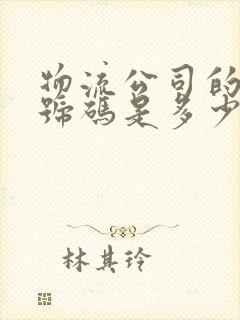 物流公司的
號碼是多少
林其玲